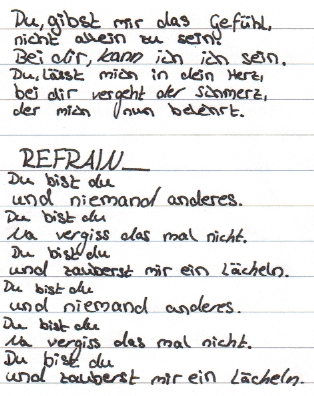 Du, gibst mir das Gefühl,
nicht allein zu sein.
Bei dir, kann ich ich sein.
Du, lässt mich in dein Herz,
bei dir vergeht der Schmerz,
der mich nun belehrt.
REFRAIN
Du bist du
und niemand anderes.
Du bist du
Na vergiss das mal nicht.
Du bist du
und zauberst mir ein Lächeln.
Du bist du
und niemand anderes.
Du bist du
Na vergiss das mal nicht.
Du bist du
und zauberst mir ein Lächeln.